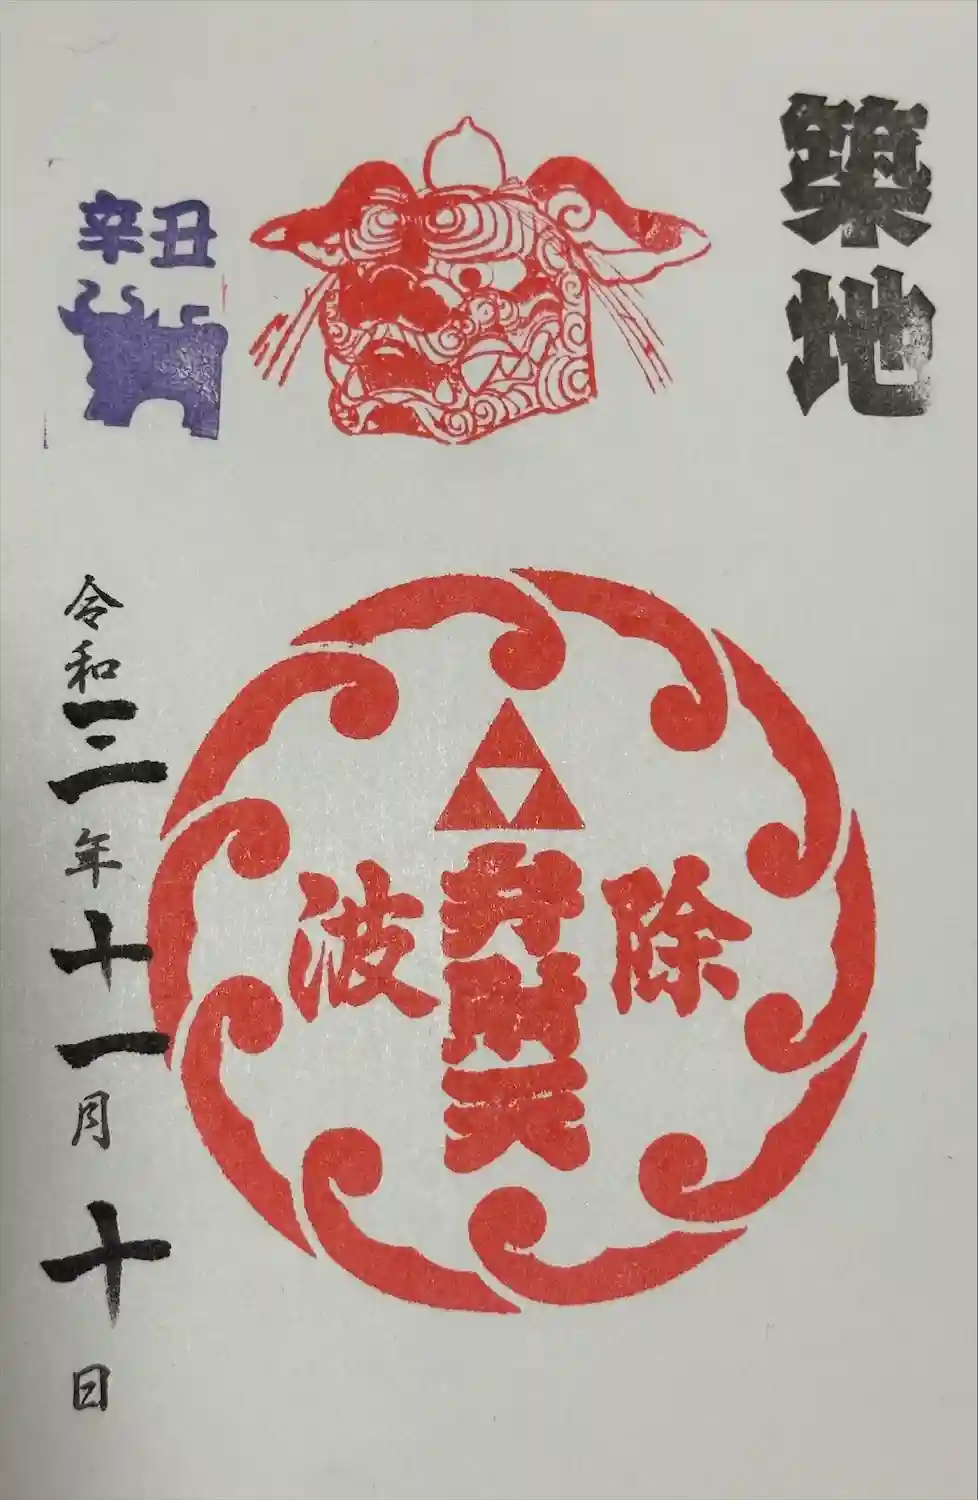 築地
除
弁財天
波
辛丑
令和三年十一月十日